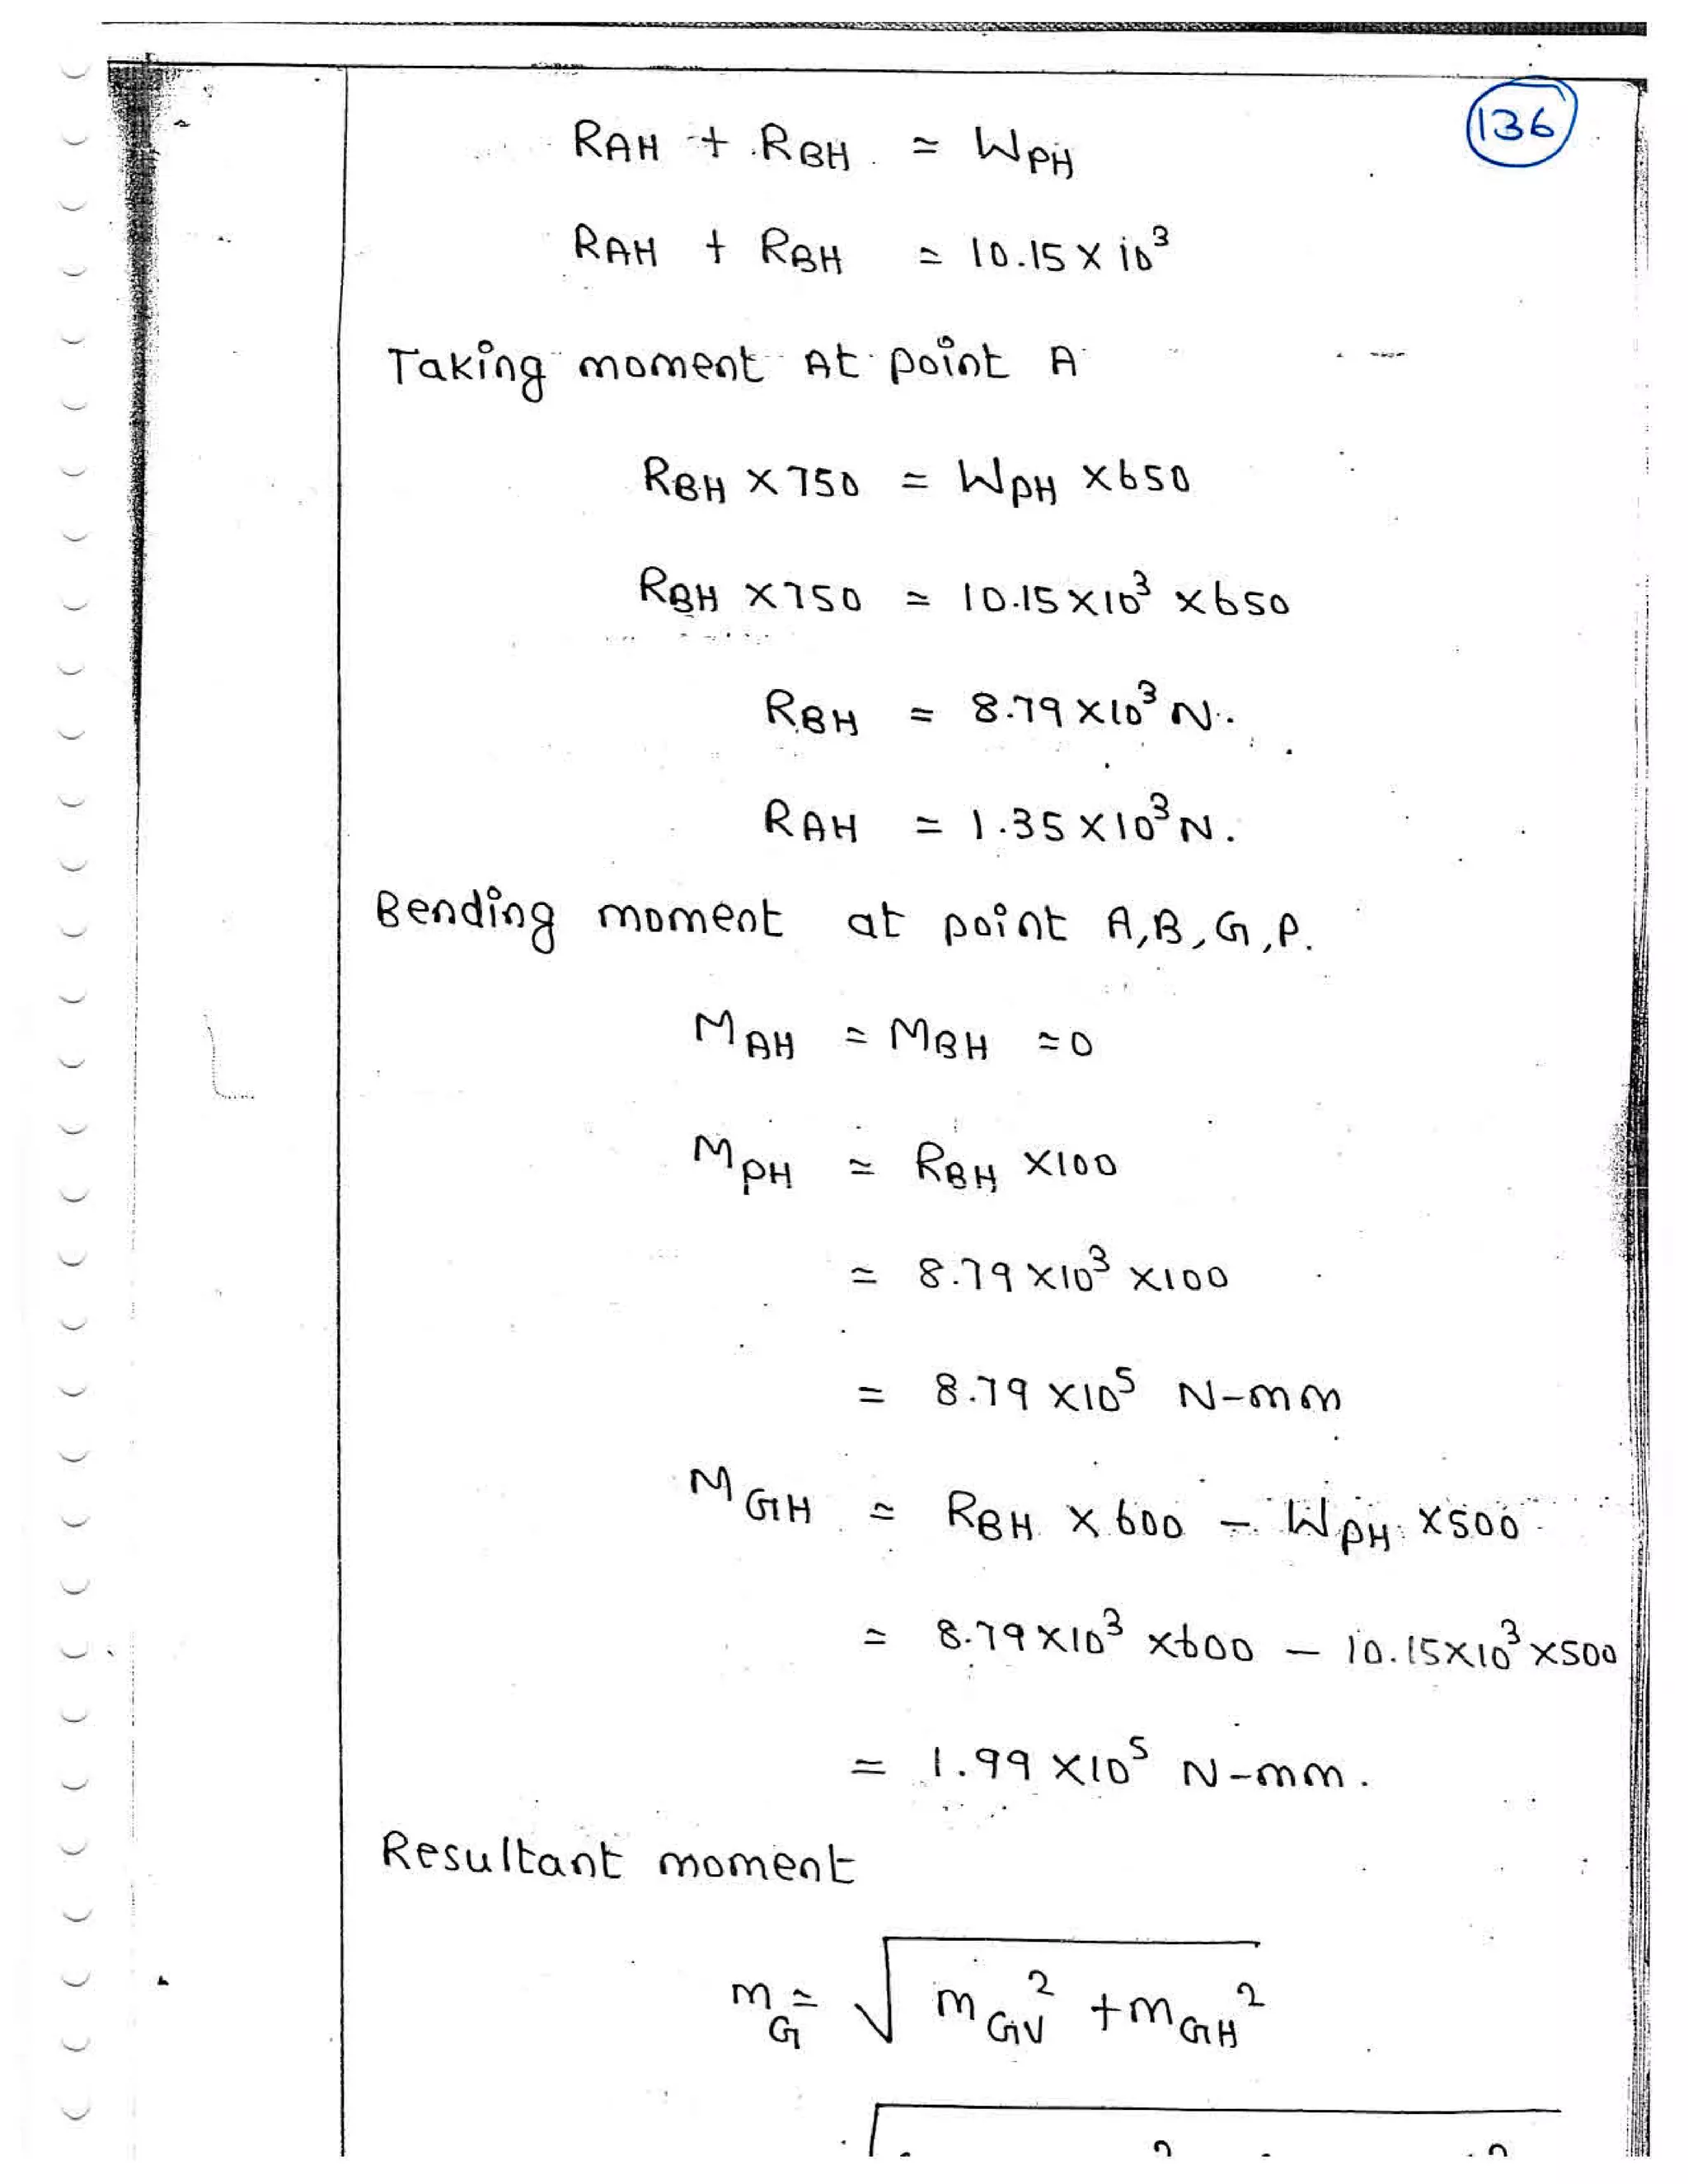 136
RAH + RBH = WPH
RAH + RBH = 10.15 × 10³
Taking moment At point A
RBH × 750 = WPH × 650
RBH × 750 = 10.15 × 10³ × 650
RBH = 8.79 × 10³ N.
RAH = 1.35 × 10³ N.
Bending moment at point A, B, G, P.
MAH = MBH = 0
MPH = RBH × 100
= 8.79 × 10³ × 100
= 8.79 × 10⁵ N-mm
MGH = RBH × 600 - WPH × 500
= 8.79 × 10³ × 600 - 10.15 × 10³ × 500
= 1.99 × 10⁵ N-mm.
Resultant moment
mG = √ mGV² + mGH²